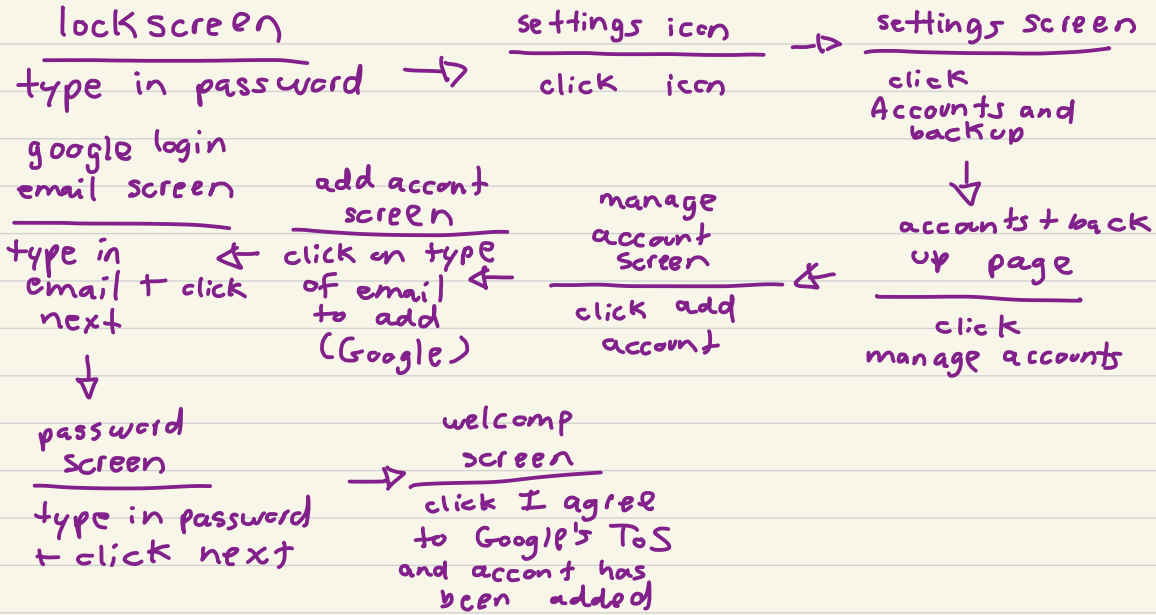 lockscreen
type in password
settings icon
click icon
settings screen
click
Accounts and
backup
accounts + back
up page
click
manage accounts
manage
account
screen
click add
account
add accont
screen
click on type
of email
to add
(Google)
google login
email screen
type in
email + click
next
password
screen
type in password
+ click next
welcome
screen
click I agree
to Google's ToS
and accont has
been added